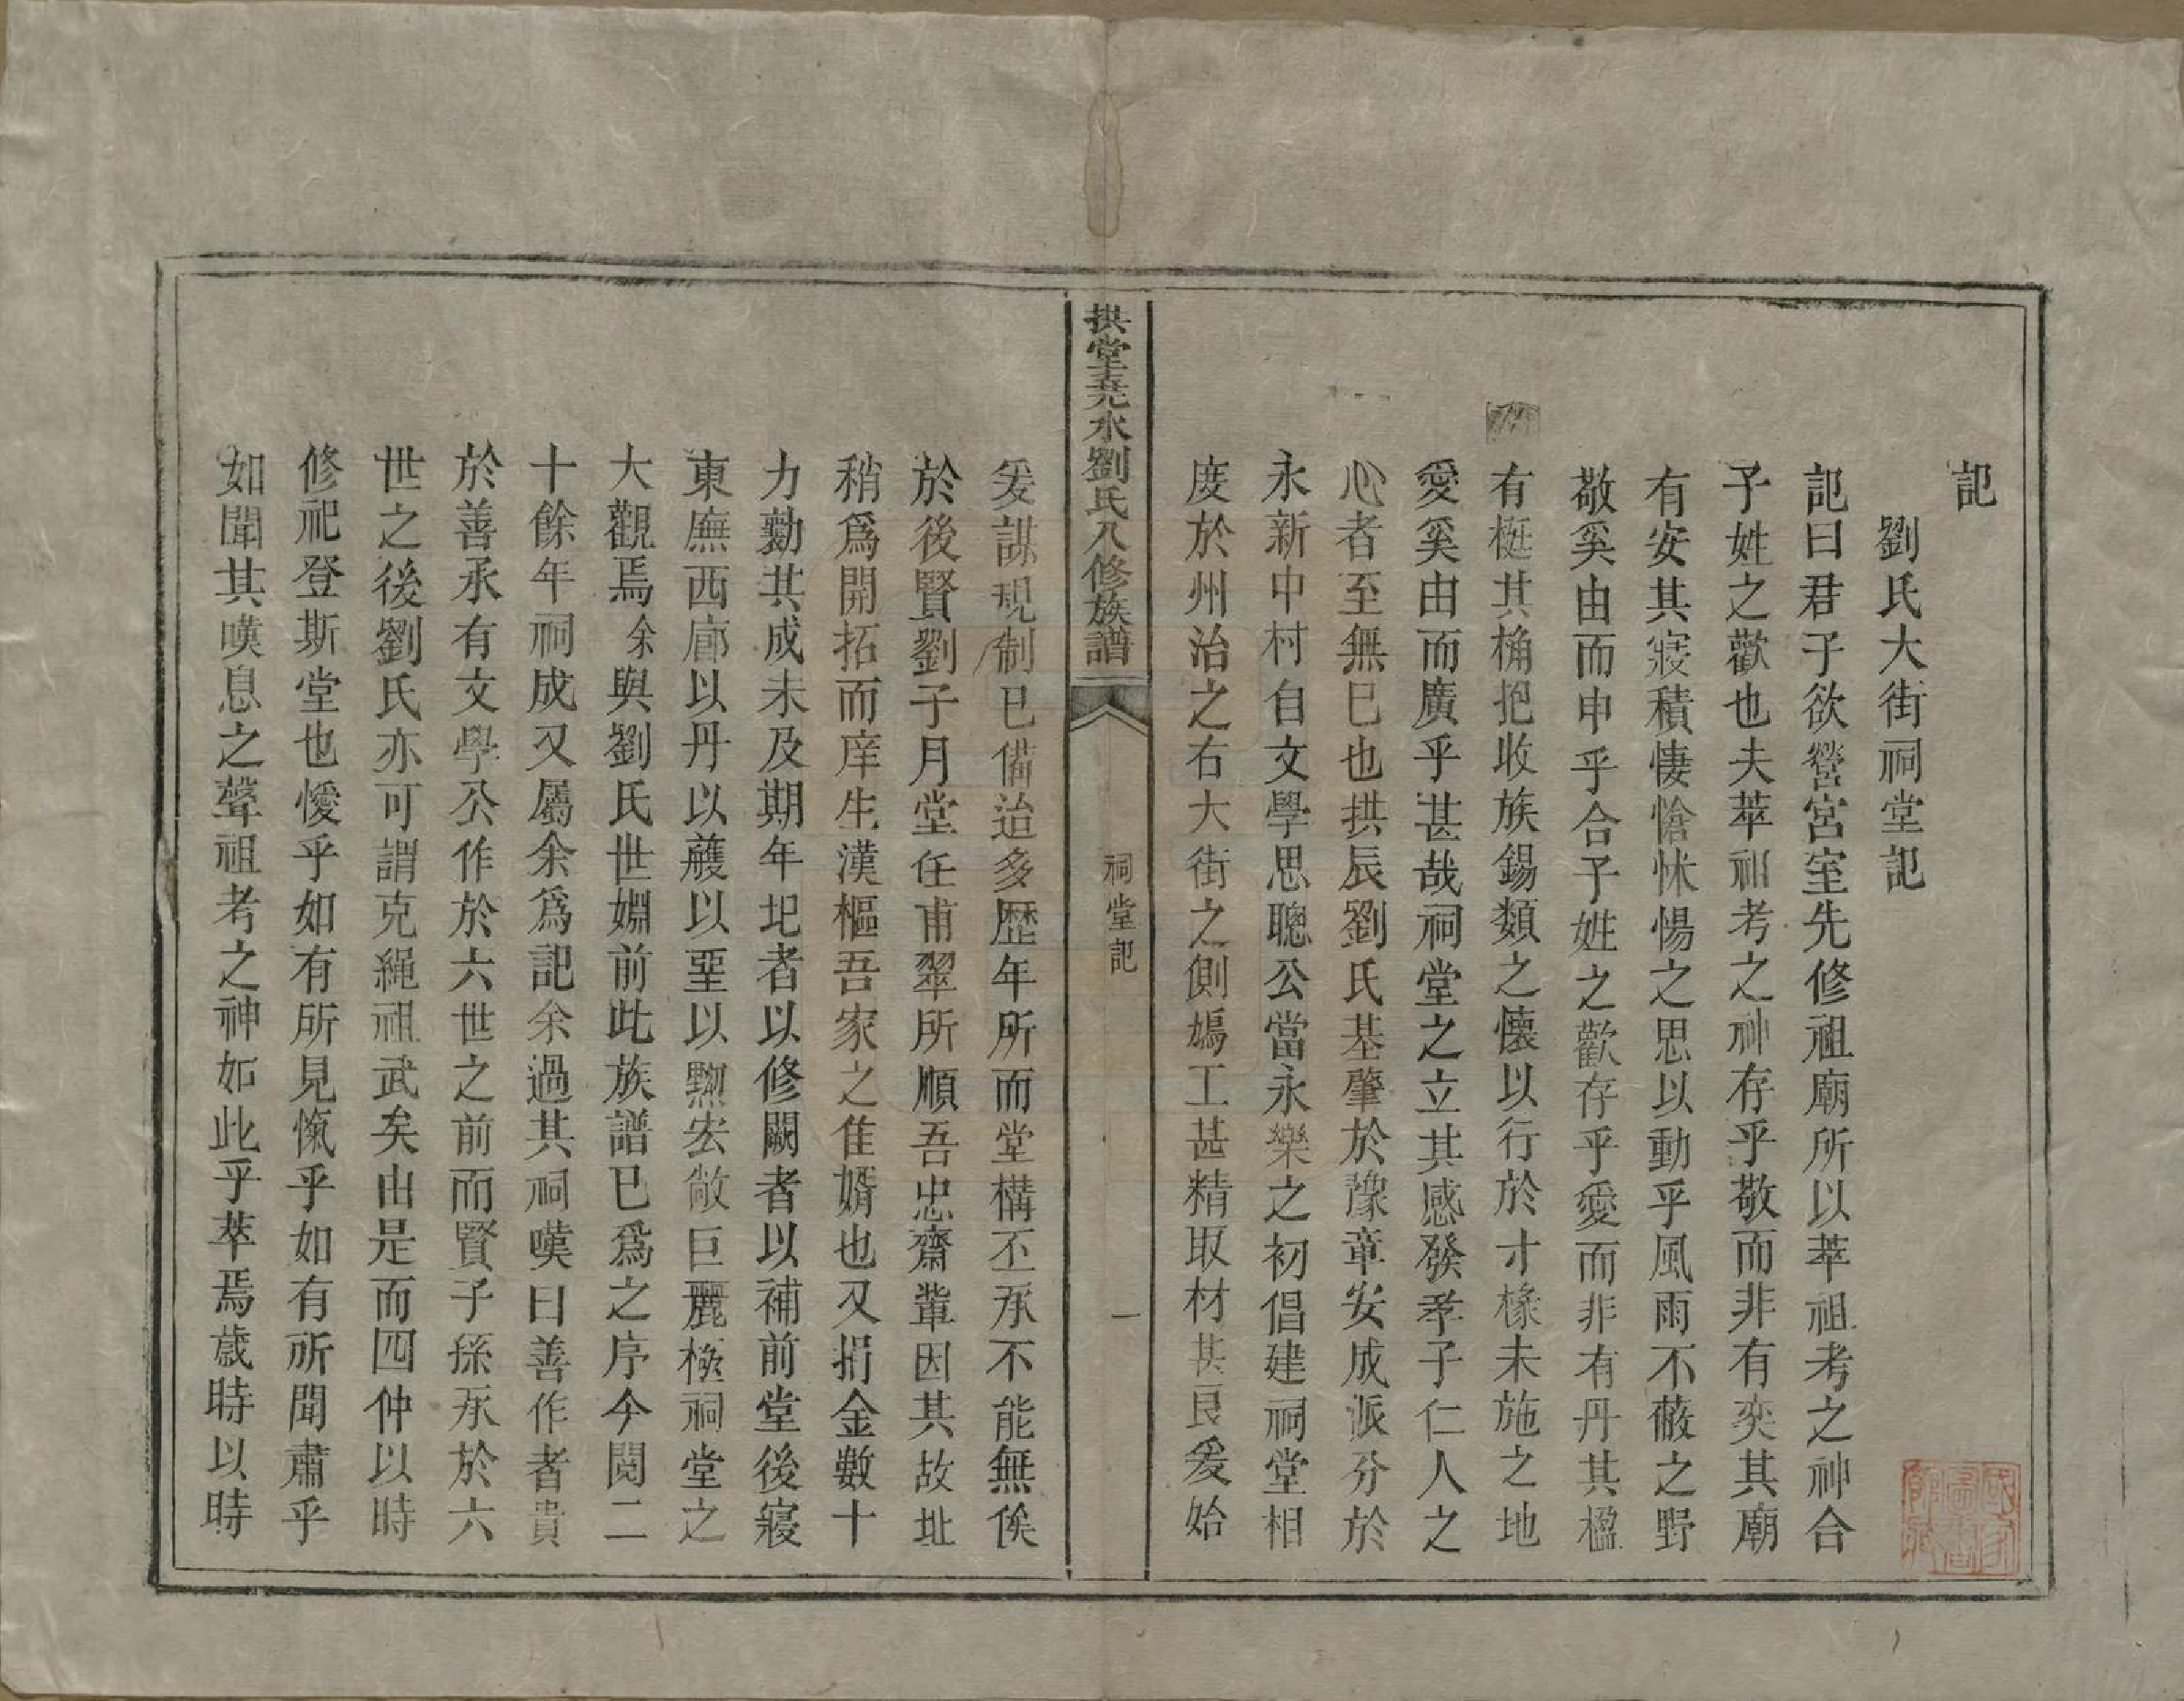 記
劉氏大街祠堂記
記曰君子欲營宮室先修祖廟所以萃祖考之神合
予姓之歡也夫萃祖考之神存乎敬而非有奕其廟
有安其寢積悽愴怵惕之思以動乎風雨不蔽之野
敬奚由而申乎合子姓之歡存乎愛而非有丹其楹
有梃其桷抱收族錫類之懷以行於寸椽未施之地
愛奚由而廣乎甚哉祠堂之立其感發孝子仁人之
心者至無已也拱辰劉氏基肇於豫章安成派分於
永新中村自文學思聰公當永樂之初倡建祠堂相
度於州治之右大街之側鳩工甚精取材甚良爰始
拱堂堯水劉氏八修族譜
祠堂記
一
爰謀規制已備迨多歷年所而堂構丕承不能無俟
於後賢劉子月堂任甫翠所順吾忠齋輩因其故址
稍爲開拓而庠生漢樞吾家之隹婿也又捐金數十
力勷其成未及期年圯者以修闕者以補前堂後寢
東廡西廊以丹以雘以堊以黝宏敞巨麗極祠堂之
大觀焉余與劉氏世婣前此族譜已爲之序今閱二
十餘年祠成又屬余爲記余過其祠嘆曰善作者貴
於善承有文學公作於六世之前而賢子孫承於六
世之後劉氏亦可謂克繩祖武矣由是而四仲以時
修祀登斯堂也懓乎如有所見愾乎如有所聞肅乎
如聞其嘆息之聲祖考之神如此乎萃焉歲時以時